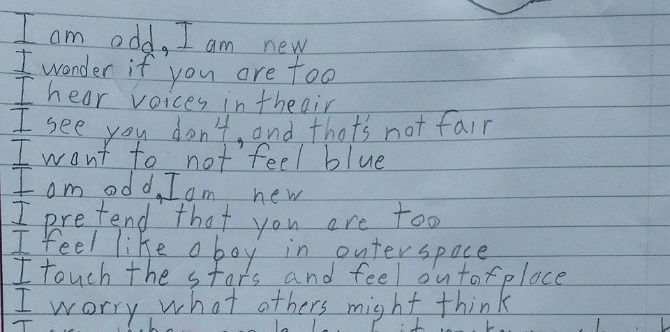 I am odd, I am new
I wonder if you are too
I hear voices in the air
I see you don't, and that's not fair
I want to not feel blue
I am odd, I am new
I pretend that you are too
I feel like a boy in outer space
I touch the stars and feel out of place
I worry what others might think